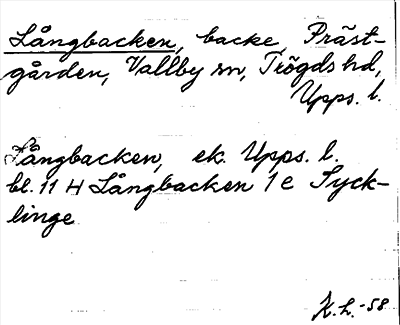 Långbacken, backe, Präst-
gården, Vallby sn, Trögds hd,
Upps. l.
Långbacken, ek. Upps. l.
bl. 11 H Långbacken 1 e Syck-
linge
K.L. -58